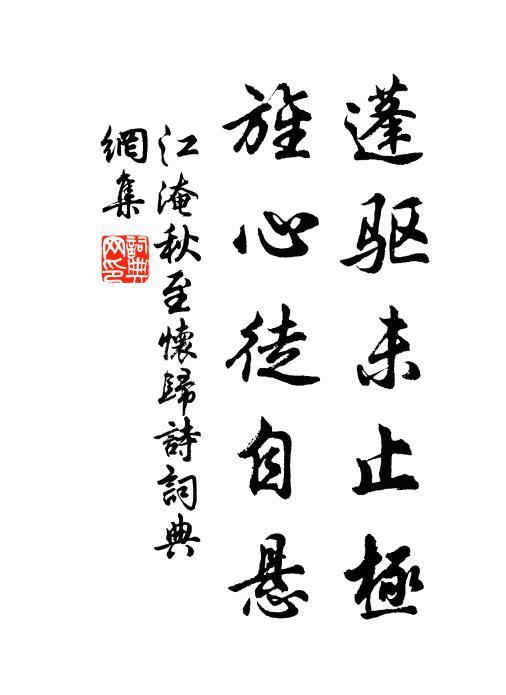 蓬驱未止極
旌心徒自悬
江淹秋至懷歸詩詞典
網集
詞典网印